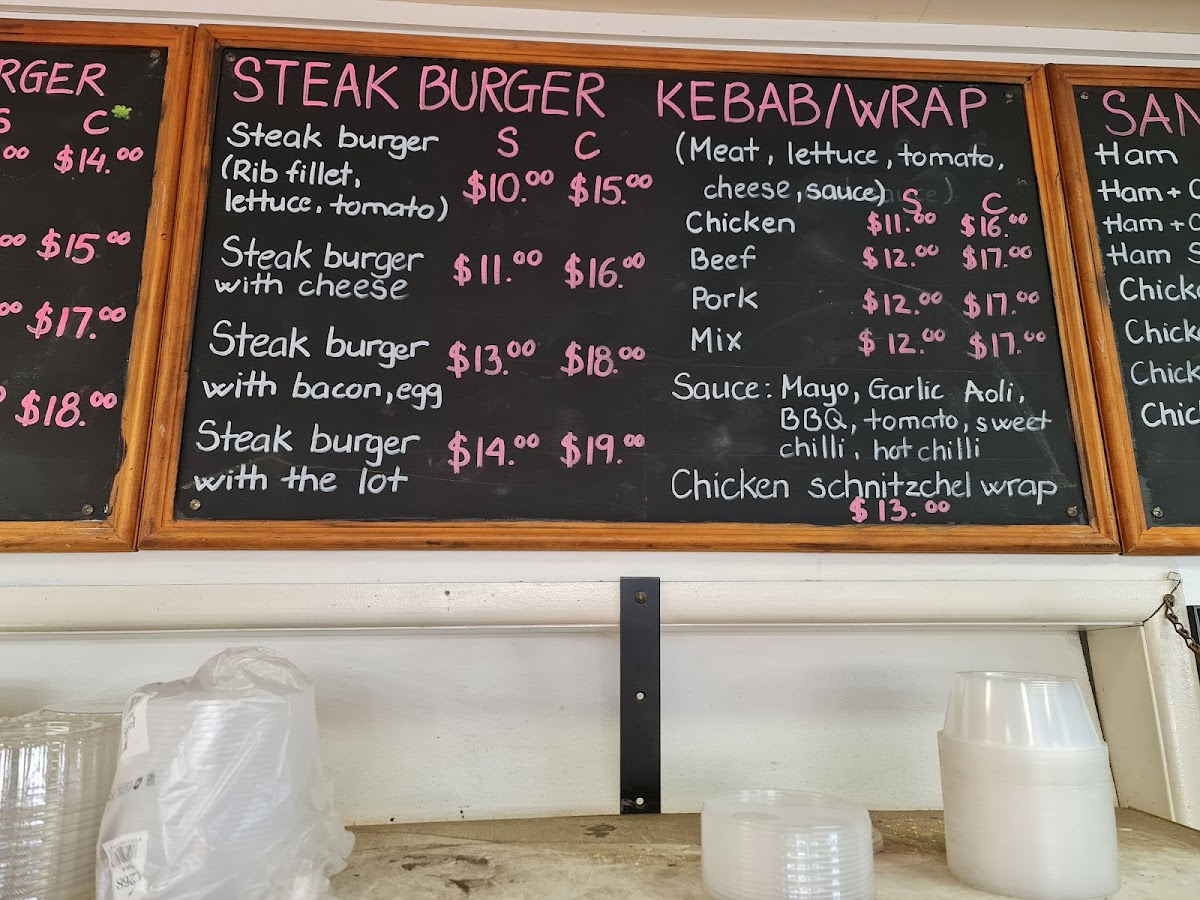 RGER
S C
00 $14.00
00 $15.00
00 $17.00
$18.00
STEAK BURGER
S C
Steak burger
(Rib fillet, $10.00 $15.00
lettuce, tomato)
Steak burger $11.00 $16.00
with cheese
Steak burger $13.00 $18.00
with bacon, egg
Steak burger $14.00 $19.00
with the lot
KEBAB/WRAP
(Meat, lettuce, tomato,
cheese, sauce)
S C
Chicken $11.00 $16.00
Beef $12.00 $17.00
Pork $12.00 $17.00
Mix $12.00 $17.00
Sauce: Mayo, Garlic Aoli,
BBQ, tomato, sweet
chilli, hot chilli
Chicken schnitzchel wrap
$13.00
SAN
Ham
Ham +
Ham +
Ham S
Chick
Chick
Chick
Chic